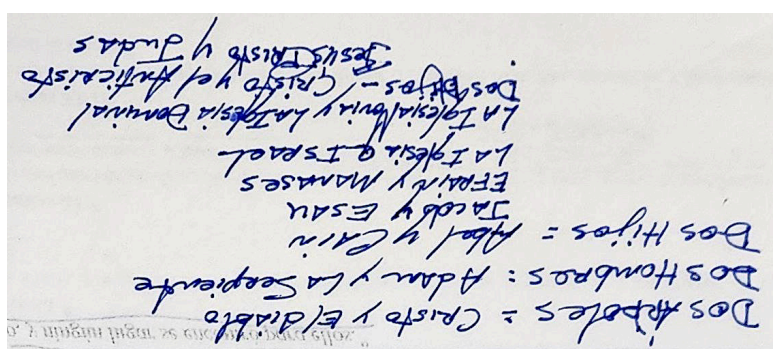 o, y ningún lugar se encontró para ellos."
Dos Árboles = Cristo y El diablo
Dos Hombres = Adan y La Serpiente
Dos Hijos = Abel y Cain
Jacob y Esau
Efrain y Manases
La Iglesia e Israel
La Iglesia Novia y La Iglesia Denominal
Dos Hijos - Cristo y el Anticristo
Jesus Cristo y Judas